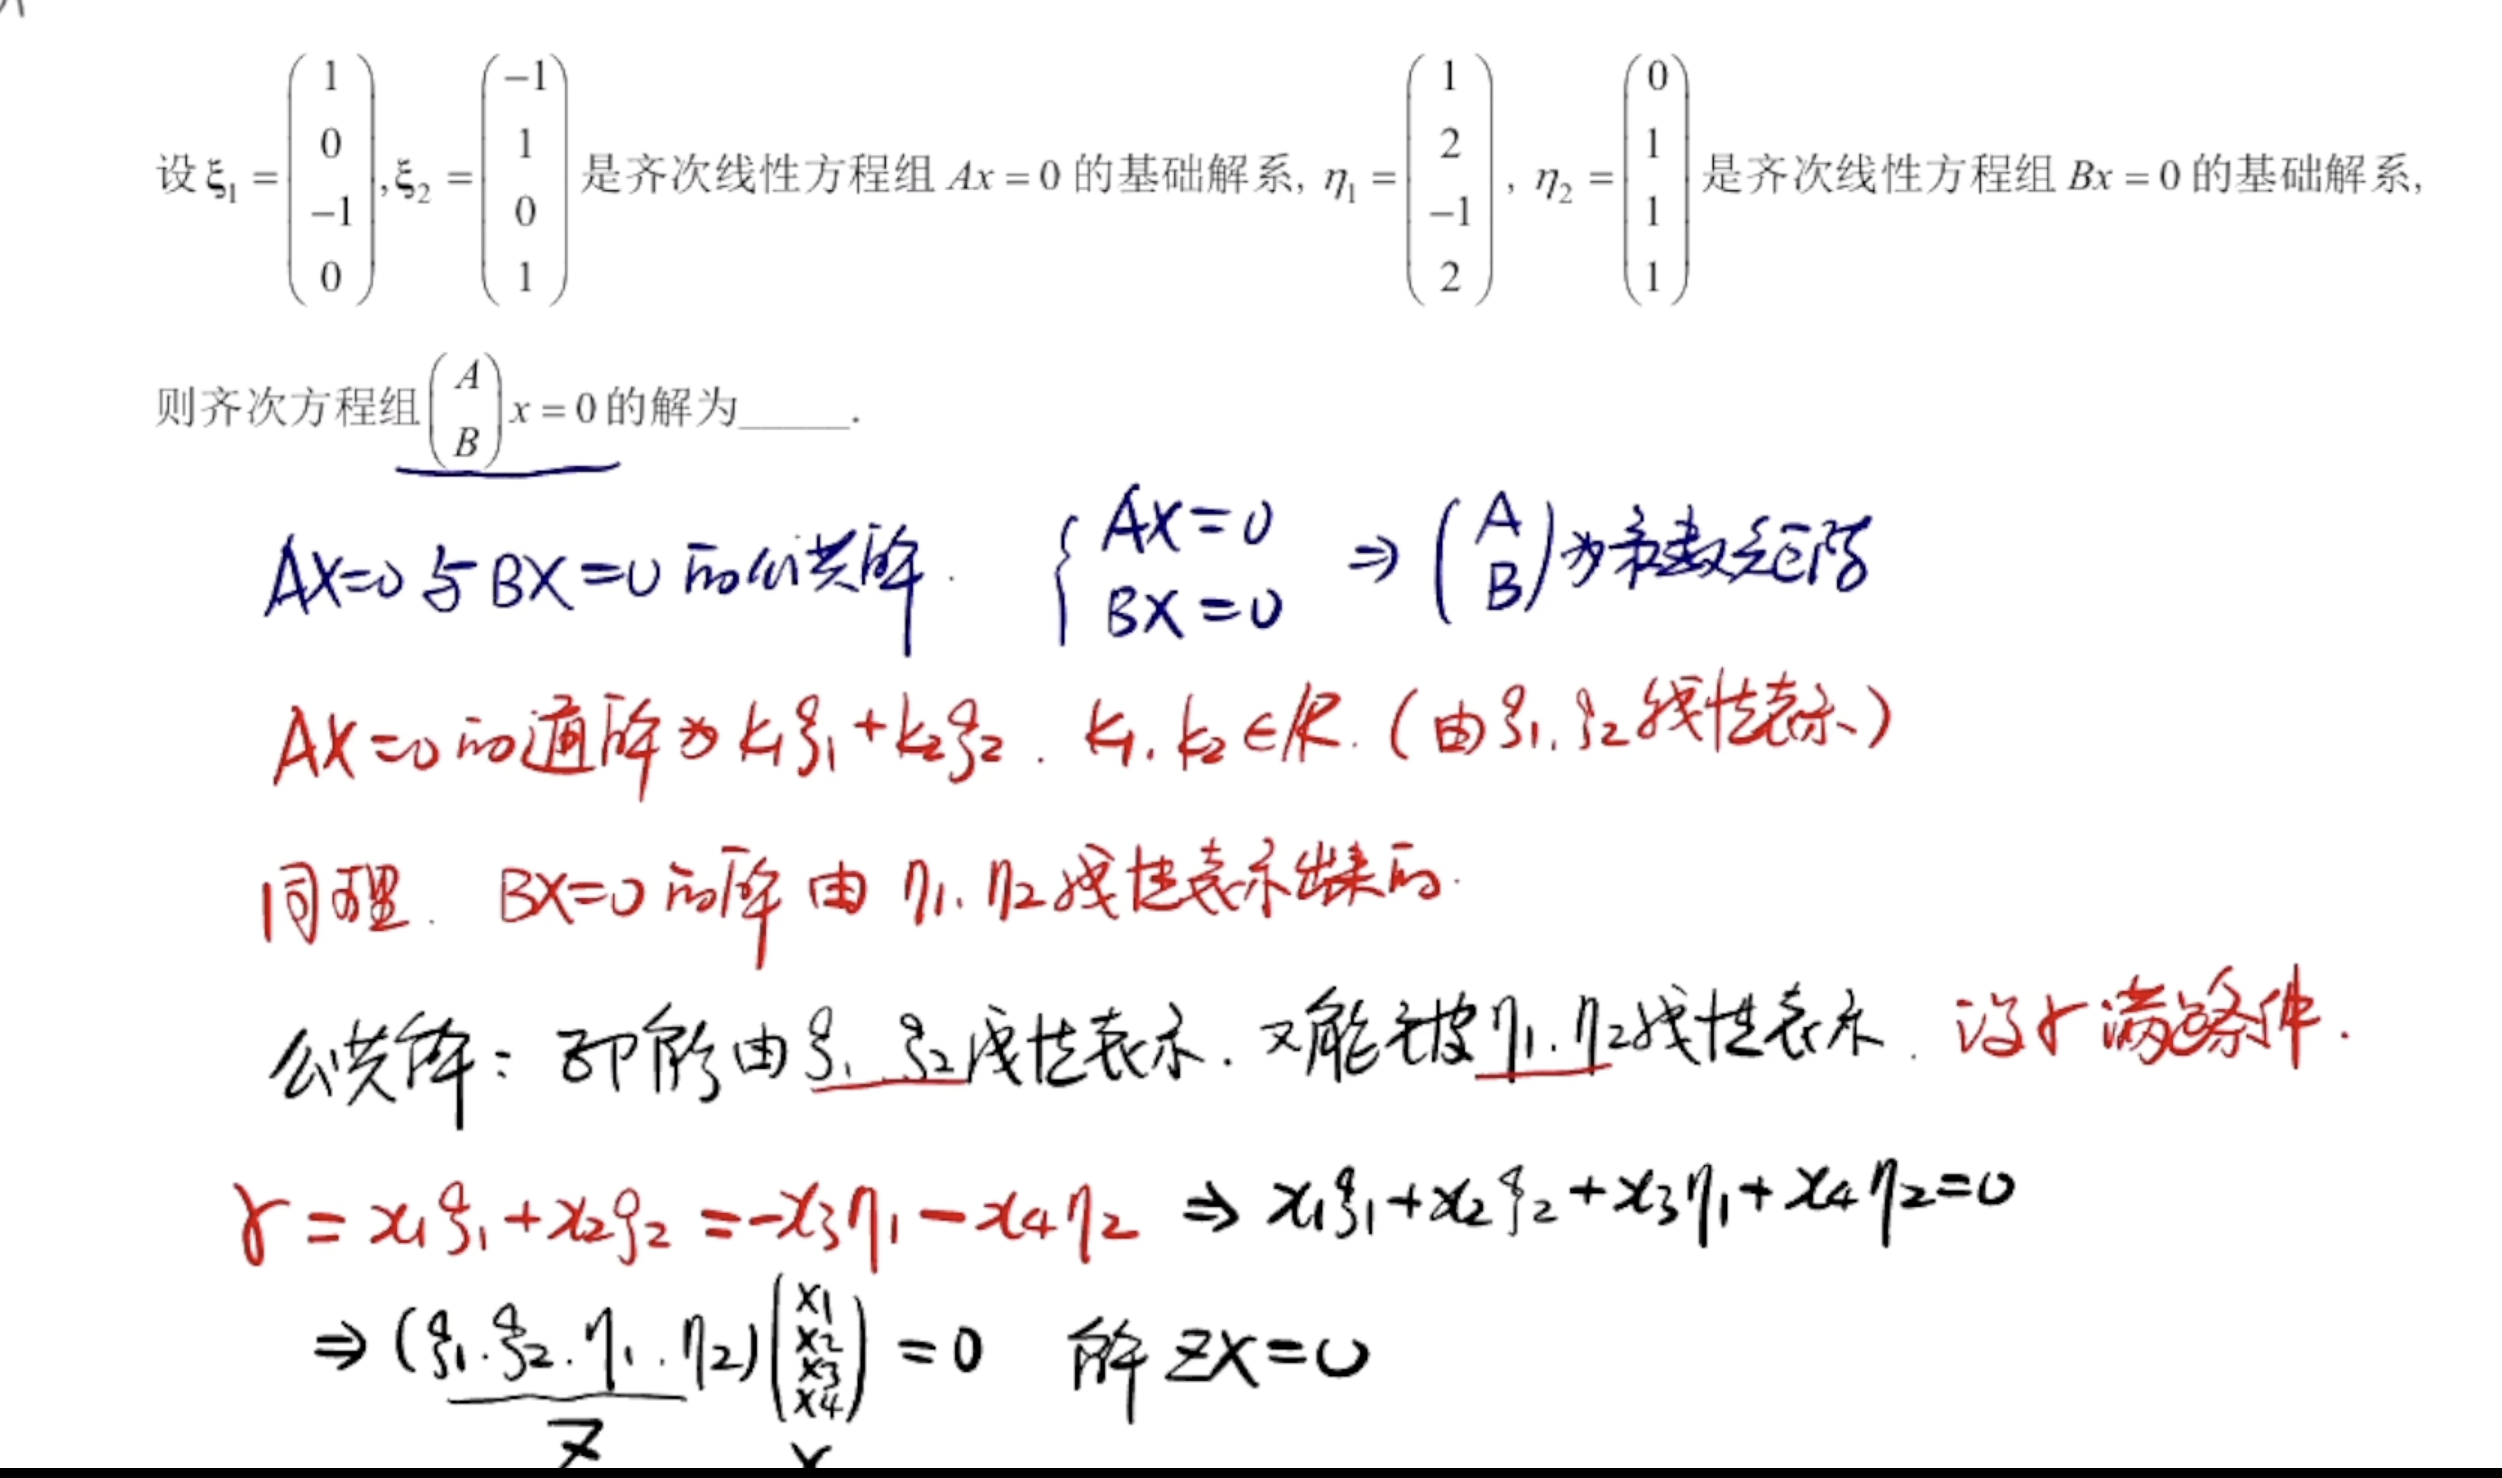 设 ξ₁ = (1, 0, -1, 0)ᵀ, ξ₂ = (-1, 1, 0, 1)ᵀ 是齐次线性方程组 Ax = 0 的基础解系, η₁ = (1, 2, -1, 2)ᵀ, η₂ = (0, 1, 1, 1)ᵀ 是齐次线性方程组 Bx = 0 的基础解系,
则齐次方程组 (A B) x = 0 的解为_____.
AX=0 与 BX=0 的公共解. { AX=0 BX=0 ⇒ (A B) 为系数矩阵
AX=0 的通解为 k₁ξ₁+k₂ξ₂. k₁.k₂∈R. (由ξ₁.ξ₂线性表示)
同理. BX=0 的解由 η₁.η₂线性表示出来的.
公共解: 即能由ξ₁.ξ₂线性表示. 又能被η₁.η₂线性表示. 设γ满足条件.
γ = x₁ξ₁+x₂ξ₂ = -x₃η₁-x₄η₂ ⇒ x₁ξ₁+x₂ξ₂+x₃η₁+x₄η₂=0
⇒ (ξ₁.ξ₂.η₁.η₂) (x1 x2 x3 x4) = 0 解 ZX=0
Z